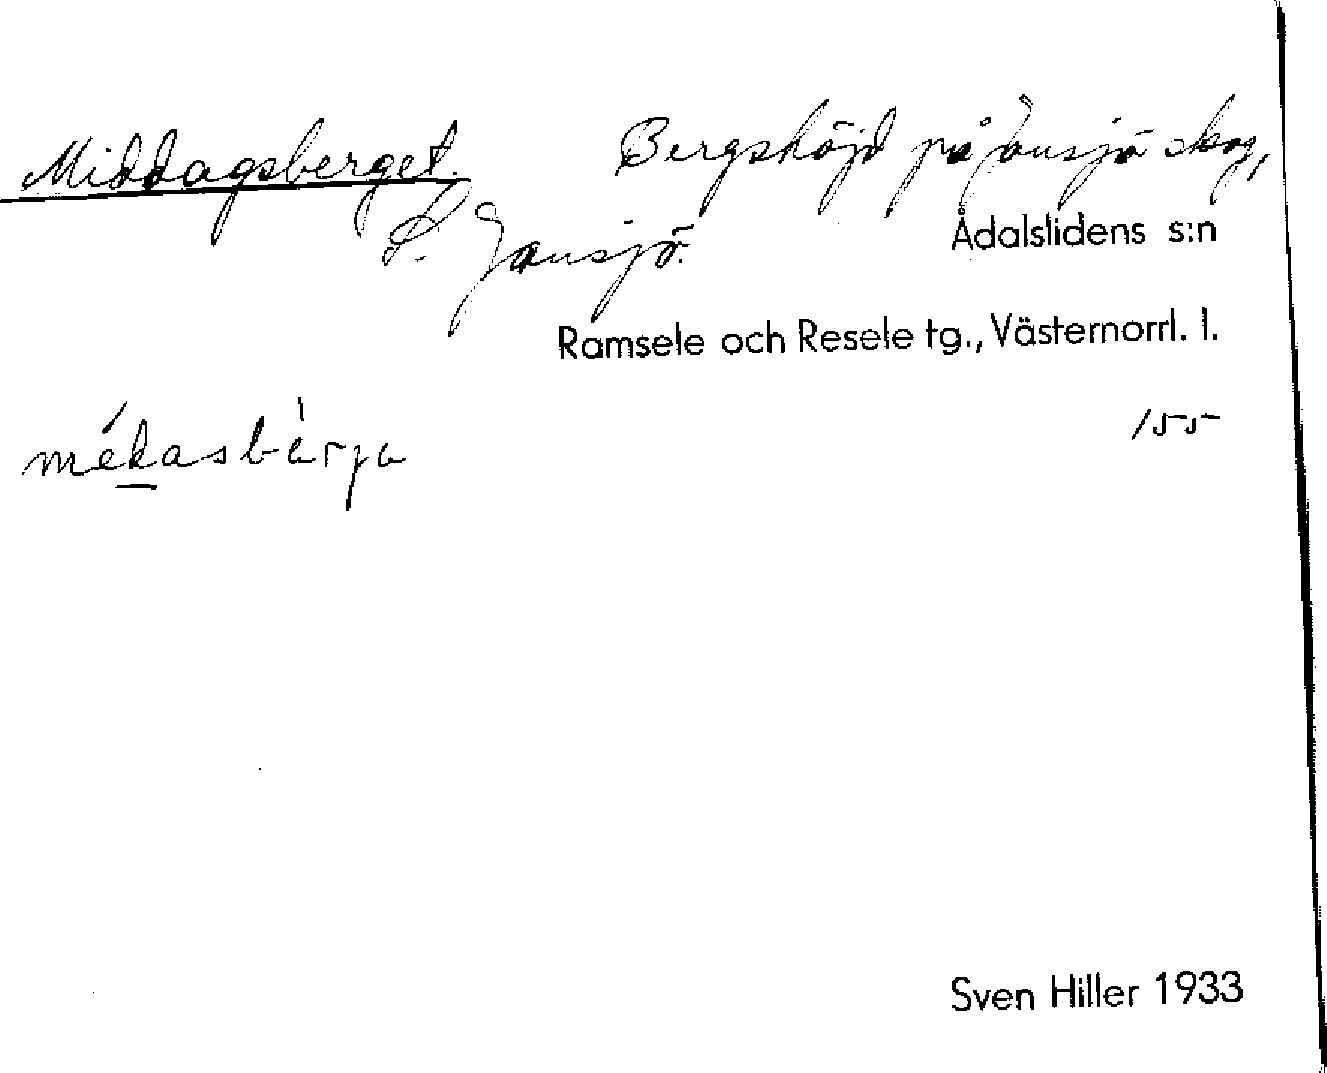 Middagsberget. Bergshöjd på Jansjö skog,
S. Jansjö. Ådalslidens s:n
Ramsele och Resele tg., Västernorrl. l.
155
Sven Hiller 1933